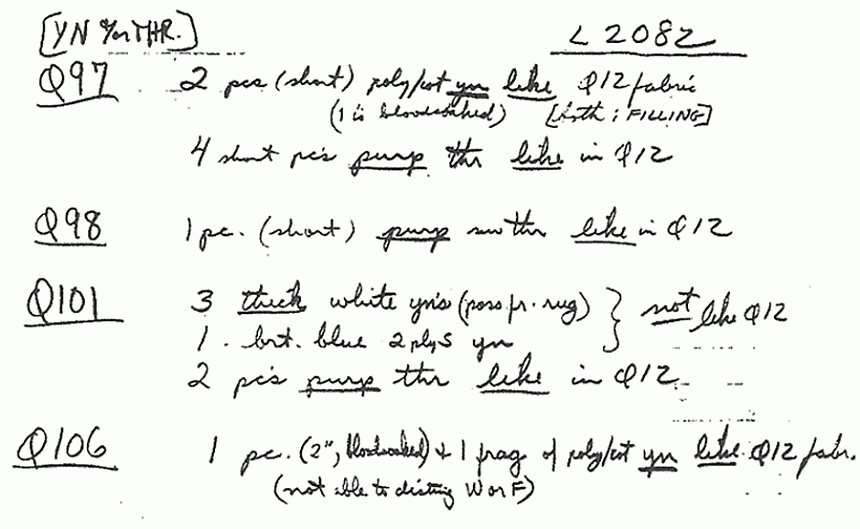 [YN &/or THR.] L 2082
Q97 2 pcs (short) poly/cot yn like Q12 fabric
(1 is bloodsoaked) [both: FILLING]
4 short pc's purp thr like in Q12
Q98 1 pc. (short) purp sw thr like in Q12
Q101 3 thick white yn's (poss fr. rug) } not like Q12
1. brt. blue 2 ply S yn
2 pc's purp thr like in Q12
Q106 1 pc. (2", bloodsoaked) & 1 frag of poly/cot yn like Q12 fabr.
(not able to disting W or F)